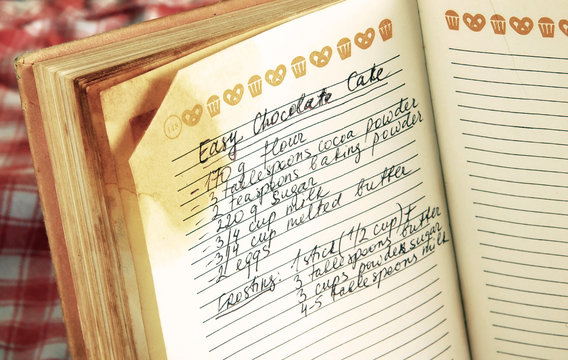 Easy Chocolate Cake
- 170 g flour
3 tablespoons cocoa powder
2 teaspoons baking powder
220 g sugar
3/4 cup milk
3/4 cup melted butter
2 eggs
Frosting: 1 stick (1/2 cup) +
3 tablespoons butter
3 cups powder sugar
4-5 tablespoons milk